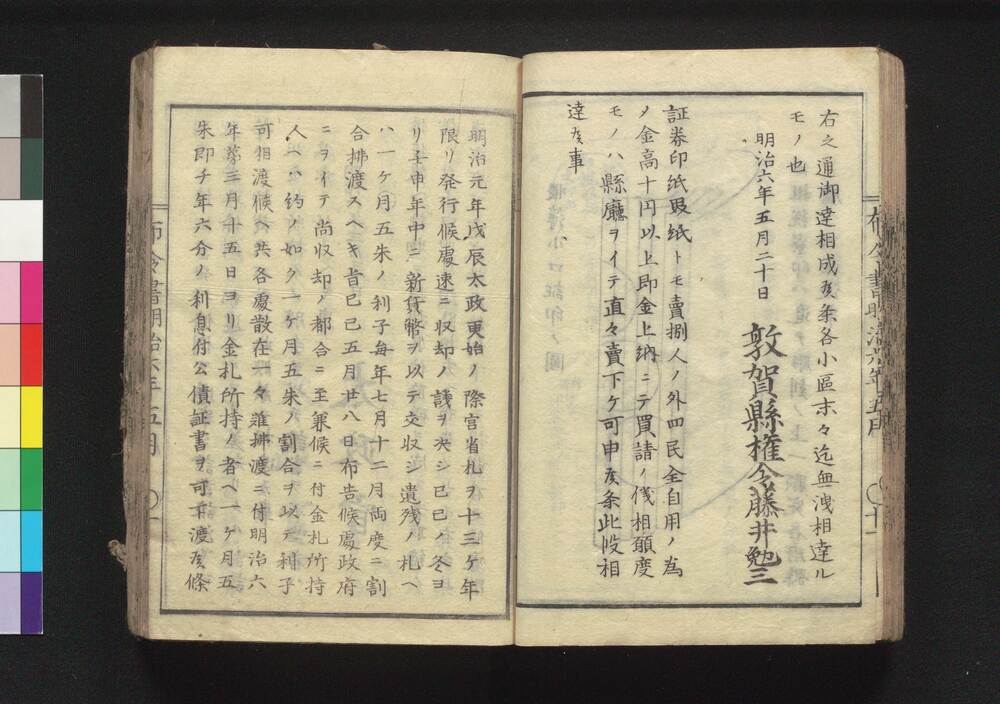 右之通御達相成候条各小區末々迄無洩相達ル
モノ也
明治六年五月二十日
敦賀縣権令藤井勉三
証券印紙毀紙トモ賣捌人ノ外四民全自用ノ為
メ金高十円以上即金上納ニテ買請ノ儀相願度
モノハ縣廳ヲイテ直々賣下ケ可申候条此段相
達候事
布令書明治六年五月 〇十一
明治元年戊辰太政更始ノ際官省札ヲ十三ケ年
限リ発行候處速ニ収却ノ議ヲ決シ已巳ノ冬ヨ
リ壬申年中ニ新貨幣ヲ以テ交収シ遺残ノ札ヘ
ハ一ケ月五朱ノ利子毎年七月十二月両度ニ割
合拂渡スヘキ旨已巳五月廿八日布告候處政府
ニヲイテ尚収却ノ都合ニ至兼候ニ付金札所持
人ヘハ約ノ如ク一ケ月五朱ノ割合ヲ以テ利子
可相渡候ヘ共各處散在一々難拂渡ニ付明治六
年第三月三十五日ヨリ金札所持ノ者ヘ一ケ月五
朱即チ年六分ノ利息付公債証書ヲ可下渡候條
布令書明治六年五月 〇十一